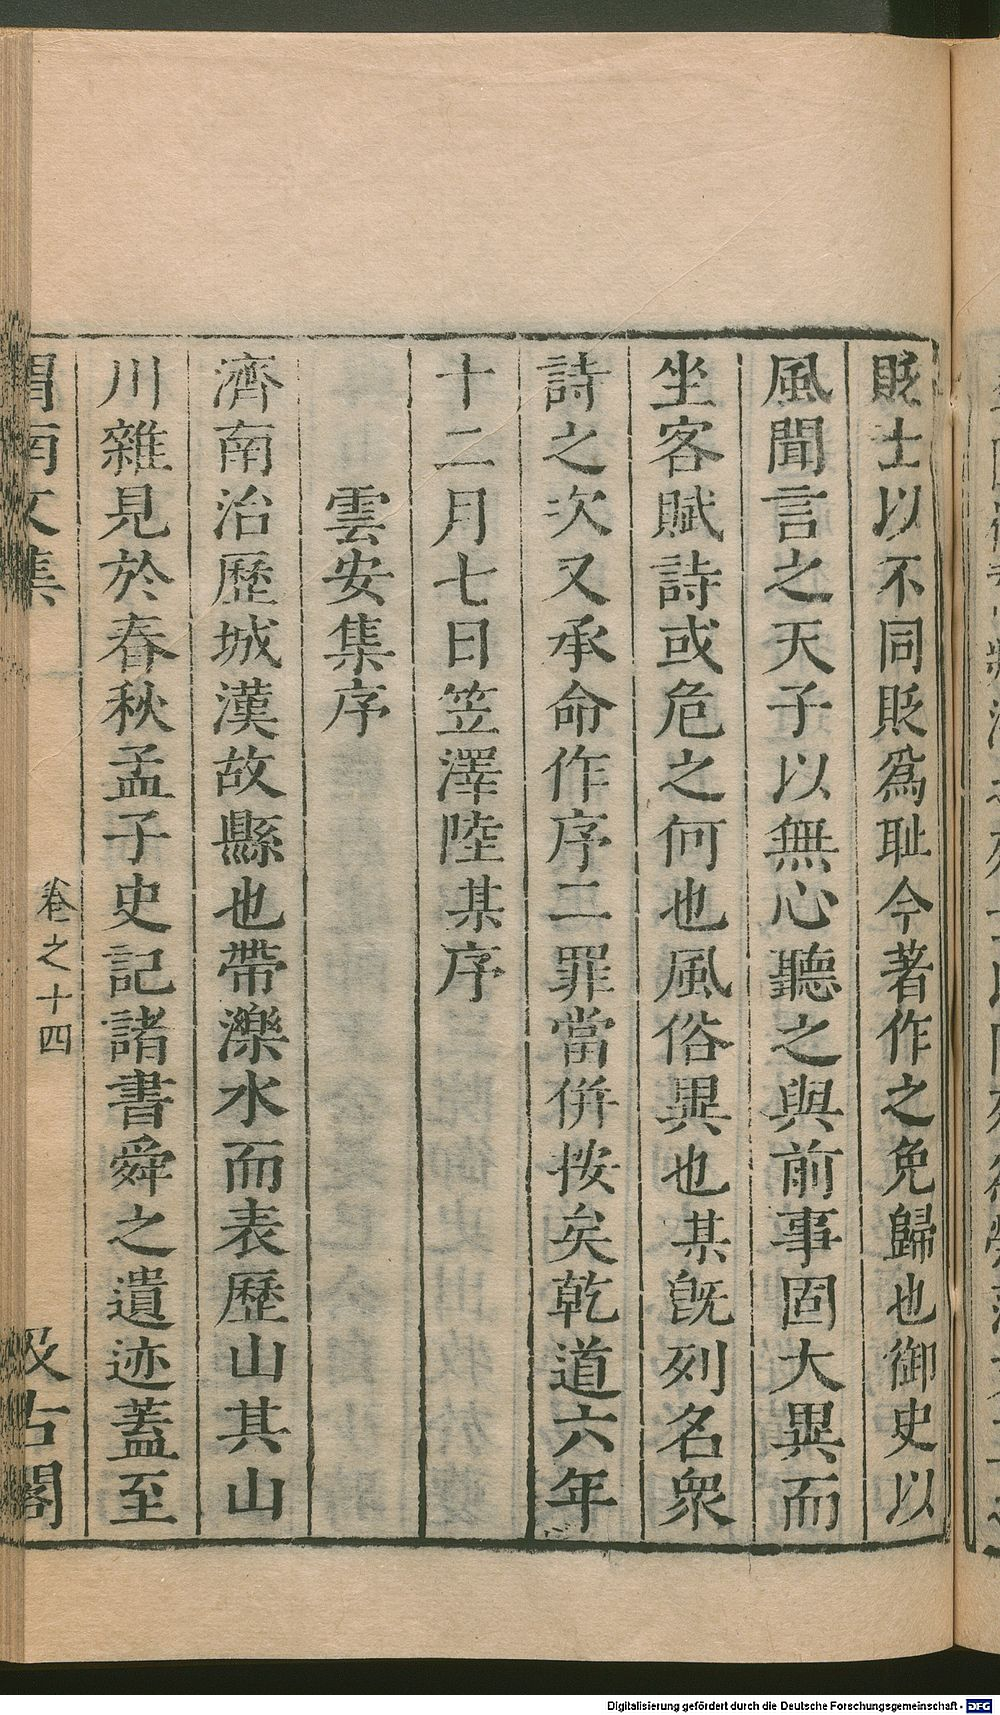 貶士以不同貶爲耻今著作之免歸也御史以
風聞言之天子以無心聽之與前事固大異而
坐客賦詩或危之何也風俗異也某旣列名衆
詩之次又承命作序二罪當併按矣乾道六年
十二月七日笠澤陸某序
雲安集序
濟南治歷城漢故縣也帶濼水而表歷山其山
川雜見於春秋孟子史記諸書舜之遺迹蓋至
渭南文集
卷之十四
汲古閣
Digitalisierung gefördert durch die Deutsche Forschungsgemeinschaft - DFG